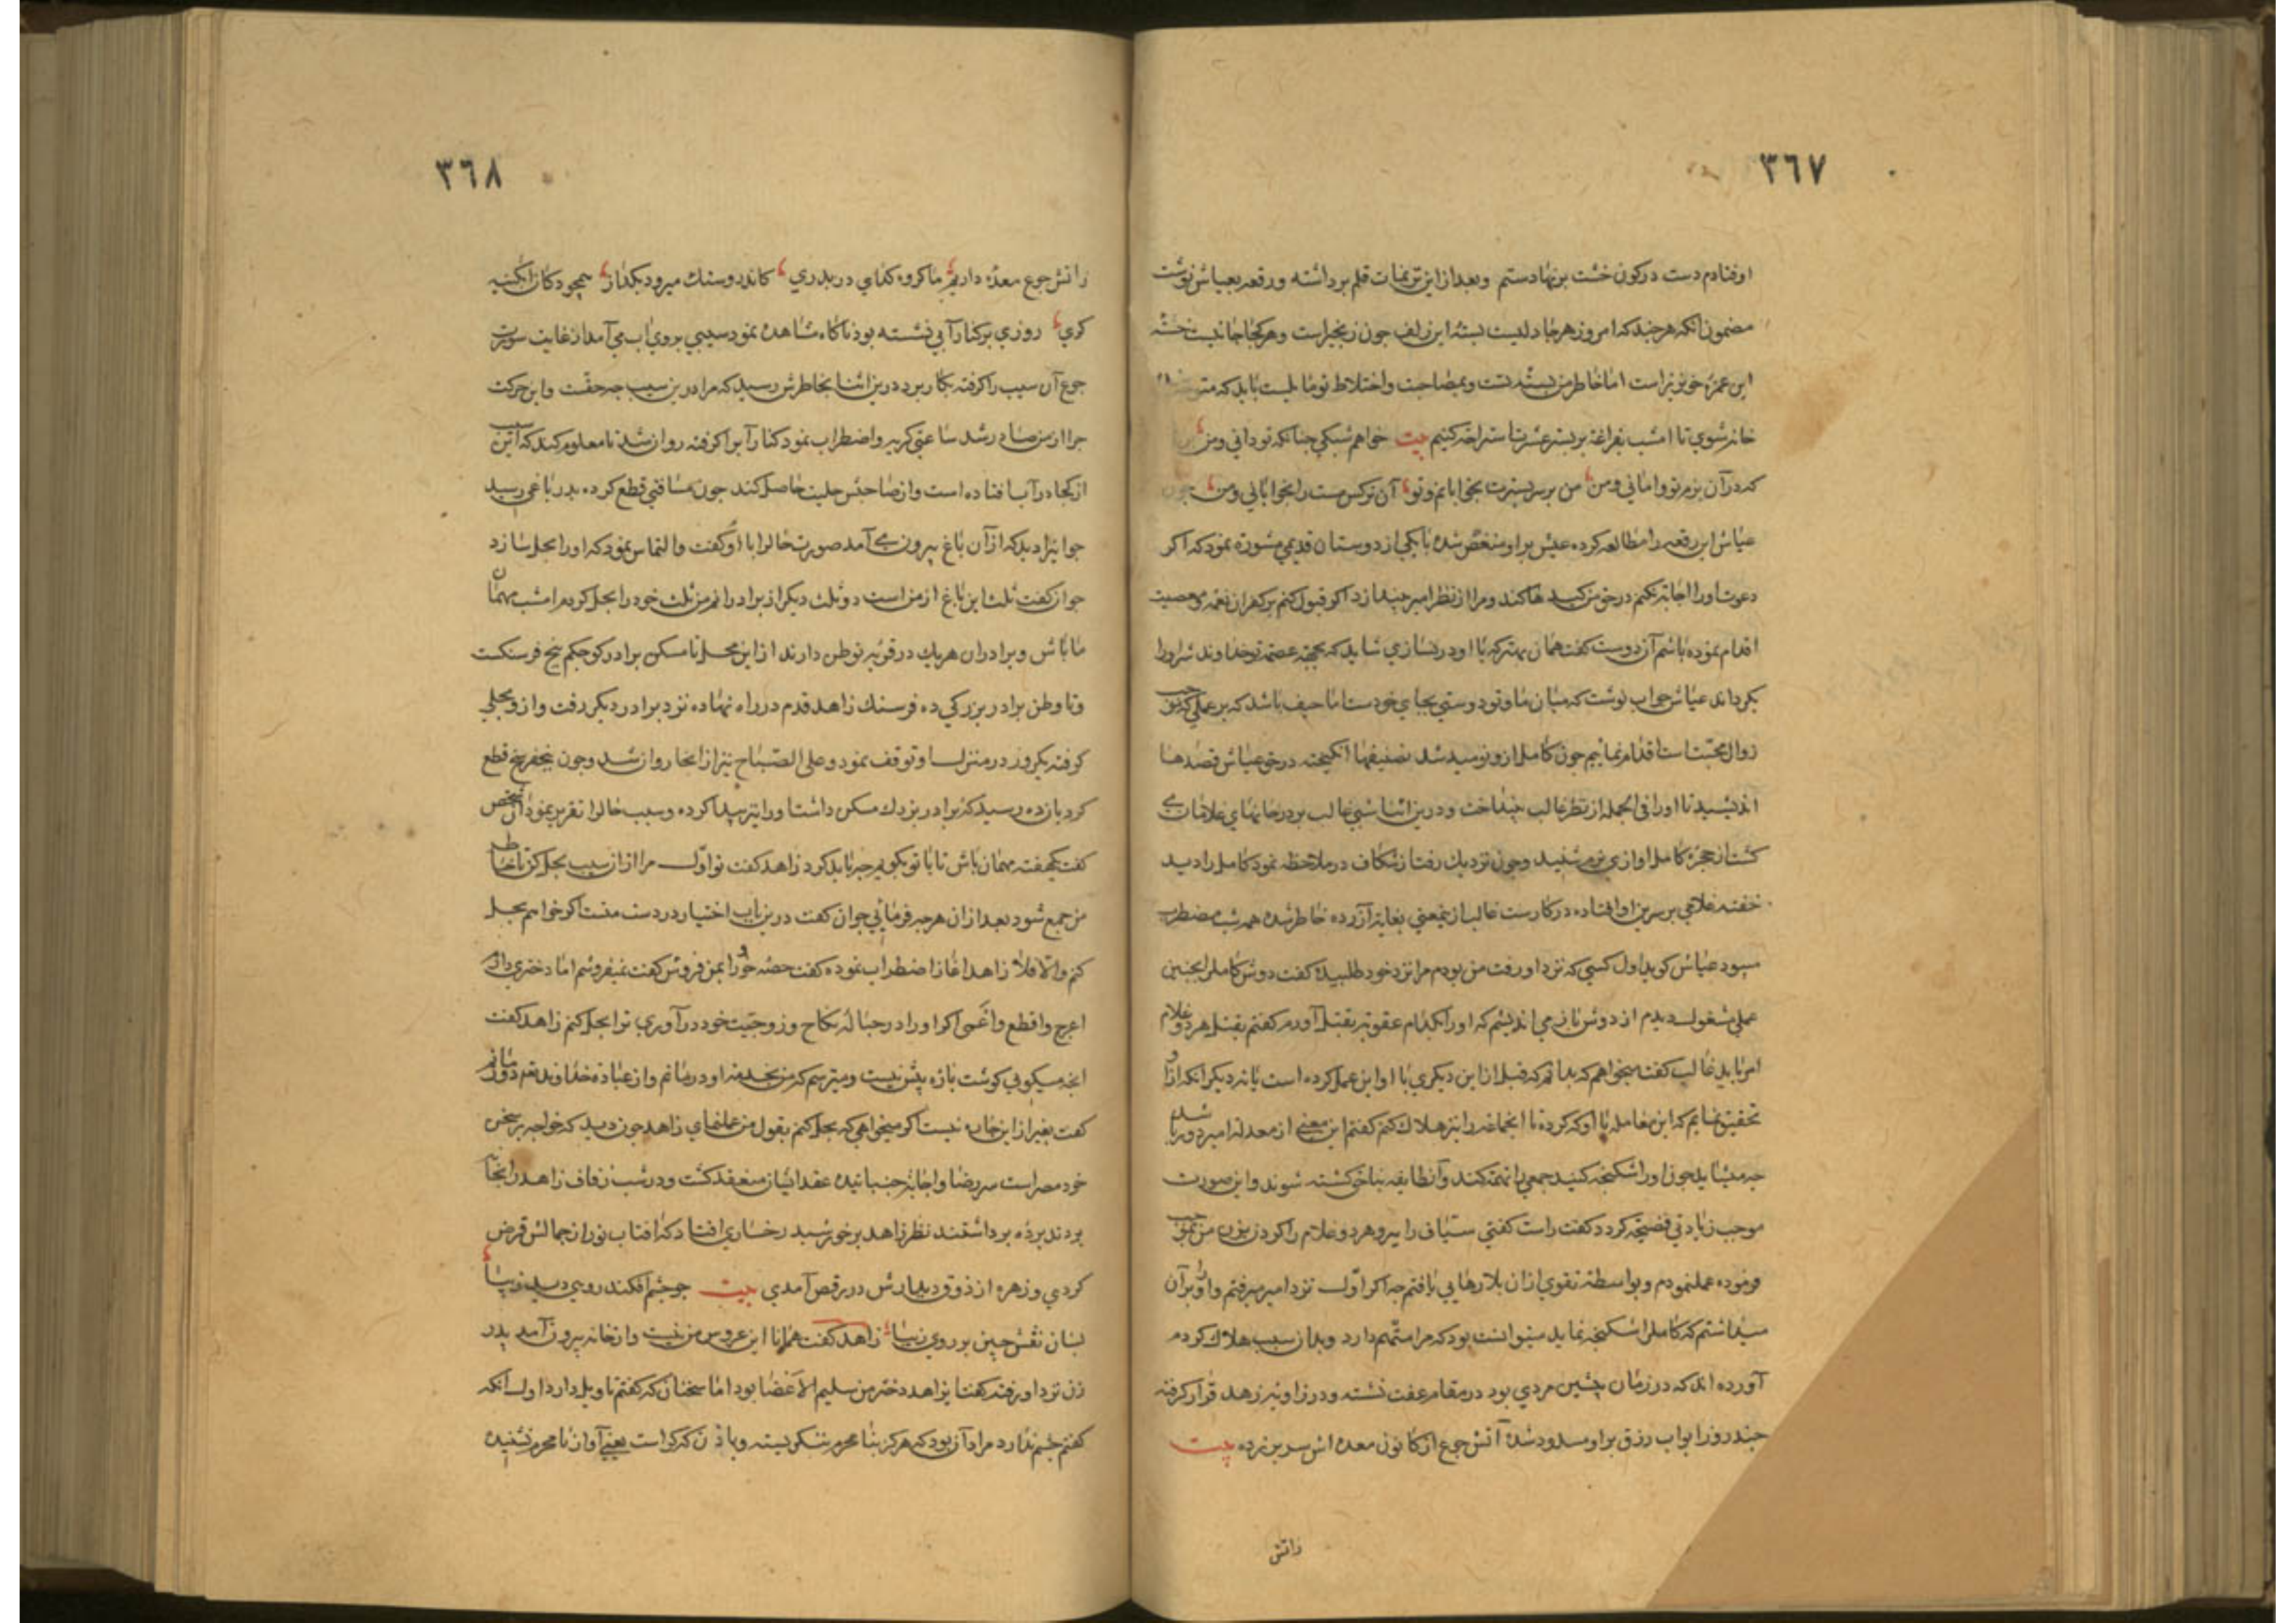 ٣٦٧
اوفتادم دست درکون خشت برنهادستم وبعد ازاین ترهات قلم برداشته ورقعه بعیاش نوشت
مضمون انکه هرچند که امروز هرجا دلیست بستهٔ این زلف چون زنجیراست وهرکجا جانیست خسته
این غمزهٔ خونریزاست اما خاطر من بستهٔ تست وبمصاحبت واختلاط تو مایلست باید که
خانه شوی تا امشب بفراغة بربستر عشرت استراحة کنیم بیت خواهم شبکی چنانکه تودانی ومن
که درآن بزم تو وامانی ومن من برسر بسترت بخوابانم وتو آن نرکس مست را بخوابانی ومن چون
عیاش این رقعه را مطالعه کرده عیش براو منغص شده بایکی ازدوستان قدیمی مشورة نمود که اکر
دعوت اورا اجابة نکنم درحق من کید ها کند ومرا ازنظر امیر بیندازد اکر قبول کنم برکفران نعمة ومعصیت
اقدام نموده باشم آن دوست کفت همان بهتر که با او درنسازی شاید که بجهة عصمة توخداوند شر اورا
بکرداند عیاش جواب نوشت که میان ما وتو دوستی بجای خودست اما حیف باشد که برعملی که موجب
زوال محبّتست اقدام نماییم چون کامل ازو نومید شد تصنیفها انکیخته درحق عیاش قصدها
اندیشید تا اورا فی الجمله ازنظر غالب بینداخت ودرین اثنا شبی غالب بردرخانهای غلامان می
کشت ازحجرهٔ کامل اوازی نرم شنید وچون نزدیك رفت ازشکاف درملاحظه نمود کامل را دید
خفته غلامی برسرین او افتاده درکارست غالب ازین معنی بغایة آزرده خاطر شده همه شب مضطرب
میبود عیاش کوید اول کسی که نزد او رفت من بودم مرا نزد خود طلبیده کفت دوش کامل را بچنین
عملی مشغول دیدم از دوش باز می اندیشم که اورا بکدام عقوبة بقتل آورم کفتم بقتل هردو غلام
امر باید غالب کفت میخواهم که بدانم که قبل ازاین دیکری با او این عمل کرده است یا نه دیکر انکه ازو
تحقیق نمایم که این معامله با او که کرده تا انجماعة را نیز هلاك کنم کفتم این معنی از معدلة امیر دور باشد
چه میشاید چون اورا شکنجه کنید جمعی را تهمة کند وآنطایفه بناحق کشته شوند واین صورت
موجب زیادتی فضیحة کردد کفت راست کفتی سیّاف را ببر وهردو غلام را کردن بزن من بموجب
فرموده عمل نمودم وبواسطهٔ تقوی ازان بلا رهایی یافتم چه اکر اوّل نزد امیر نمیرفتم واو را برآن
میداشتم که کامل را شکنجه نماید میتوانست بود که مرا متّهم دارد وبدان سبب هلاك کردم
آورده اند که درزمان پیشین مردی بود درمقام عفت نشسته ودرزاویهٔ زهد قرار کرفته
چند روز ابواب رزق براو مسدود شده آتش جوع ازکانون معده اش سربرزده بیت
زاتش
٣٦٨
زاتش جوع معدهٔ داریم ما کروه کدای دربدری کاندرو سنك میرود بکداز همچو دکان ابکینه
کری روزی برکنار آبی نشسته بود ناکاه مشاهده نمود سیبی بروی اب می آمد ازغایت سورت
جوع آن سیب را کرفته بکار برد درین اثنا بخاطرش رسید که مرا درین سیب چه حقّست واین حرکت
چرا ازمن صادر شد ساعتی کریه واضطراب نمود کنار آبرا کرفته روان شد تا معلوم کند که این سیب
ازکجا درآب افتاده است وازصاحبش حلیت حاصل کند چون مسافتی قطع کرده بدر باغی رسید
جوانیرا دید که ازآن باغ بیرون می آمد صورت حالرا با او کفت والتماس نمود که اورا بحل سازد
جوان کفت ثلث این باغ ازمن است دو ثلث دیکر ازبرادرانم من ثلث خود را بحل کردم امشب مهمان
ما باش وبرادران هریك درقریهٔ توطن دارند ازاین محل تا مسکن برادر کوچکم پنج فرسنکست
وتا وطن برادر بزرکی ده فرسنك زاهد قدم درراه نهاده نزد برادر دیکر رفت وازو بحلی
کرفته یکروز درمنزل او توقف نمود وعلی الصّباح نیز از انجا روان شد وچون پنجفرسخ قطع
کرد بازده رسید که برادر بزرك مسکن داشت اورا نیز پیدا کرده وسبب حالرا تقریر نمود آن شخص
کفت یکهفته مهمان باش تا با تو بکویم چه باید کرد زاهد کفت تو اوّل مرا ازان سیب بحل کن تا خاطر
من جمع شود بعد ازان هرچه فرمائی جوان کفت درین باب اختیار دردست منست اکر خواهم بحل
کنم والا فلا زاهد اغاز اضطراب نموده کفت حصهٔ خود را بمن فروش کفت نمیفروشم اما دختری دارم
اعرج واقطع واعمی اکر اورا درحبالهٔ نکاح وزوجیت خود درآوری ترا بحل کنم زاهد کفت
انچه میکویی کوشت پارهٔ بیش نیست ومیترسم که من بخدمة او درمانم وازعبادة خداوند هم دور مانم
کفت بغیر ازاین چاره نیست اکر میخواهی که بحل کنم بقول من عمل نمای زاهد چون دید که خواجه برسخن
خود مصر است سر رضا واجابة جنبانیده عقد ایشان منعقد کشت ودرشب زفاف زاهد را بخانه
بردند پرده برداشتند نظر زاهد برخورشید رخساری افتاد که افتاب نور ازجمالش قرض
کردی وزهره ازذوق دیدارش دررقص آمدی بیت چو چشم افکند رویی دید زیبا
بسان نقش چین برروی دیبا زاهد کفت همانا این عروس من نیست وازخانه بیرون آمد پدر
زن نزد او رفته کفت ایزاهد دختر من سلیم الاعضا بود اما سخنان که کفتم تاویل دارد اول انکه
کفتم چشم ندارد مراد آن بود که هرکز بنا محرم ننکریسته وباذن که کراست یعنی آواز نامحرم نشنیده